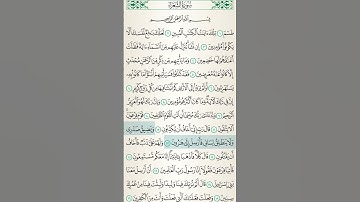 سُورَةُ الشُّعَرَاءِ
بِسْمِ اللَّهِ الرَّحْمَٰنِ الرَّحِيمِ
طسٓمٓ ١ تِلْكَ ءَايَٰتُ ٱلْكِتَٰبِ ٱلْمُبِينِ ٢ لَعَلَّكَ بَٰخِعٌ نَّفْسَكَ أَلَّا
يَكُونُوا۟ مُؤْمِنِينَ ٣ إِن نَّشَأْ نُنَزِّلْ عَلَيْهِم مِّنَ ٱلسَّمَآءِ ءَايَةً فَظَلَّتْ
أَعْنَٰقُهُمْ لَهَا خَٰضِعِينَ ٤ وَمَا يَأْتِيهِم مِّن ذِكْرٍ مِّنَ ٱلرَّحْمَٰنِ مُحْدَثٍ
إِلَّا كَانُوا۟ عَنْهُ مُعْرِضِينَ ٥ فَقَدْ كَذَّبُوا۟ فَسَيَأْتِيهِمْ أَنۢبَٰٓؤُا۟ مَا كَانُوا۟
بِهِۦ يَسْتَهْزِءُونَ ٦ أَوَلَمْ يَرَوْا۟ إِلَى ٱلْأَرْضِ كَمْ أَنۢبَتْنَا فِيهَا مِن كُلِّ زَوْجٍ كَرِيمٍ ٧
إِنَّ فِى ذَٰلِكَ لَءَايَةً وَمَا كَانَ أَكْثَرُهُم مُّؤْمِنِينَ ٨ وَإِنَّ رَبَّكَ لَهُوَ ٱلْعَزِيزُ
ٱلرَّحِيمُ ٩ وَإِذْ نَادَىٰ رَبُّكَ مُوسَىٰٓ أَنِ ٱئْتِ ٱلْقَوْمَ ٱلظَّٰلِمِينَ ١٠ قَوْمَ فِرْعَوْنَ
أَلَا يَتَّقُونَ ١١ قَالَ رَبِّ إِنِّىٓ أَخَافُ أَن يُكَذِّبُونِ ١٢ وَيَضِيقُ صَدْرِى
وَلَا يَنطَلِقُ لِسَانِى فَأَرْسِلْ إِلَىٰ هَٰرُونَ ١٣ وَلَهُمْ عَلَىَّ ذَنۢبٌ فَأَخَافُ
أَن يَقْتُلُونِ ١٤ قَالَ كَلَّا فَٱذْهَبَا بِـَٔايَٰتِنَآ إِنَّا مَعَكُم مُّسْتَمِعُونَ ١٥
فَأْتِيَا فِرْعَوْنَ فَقُولَآ إِنَّا رَسُولُ رَبِّ ٱلْعَٰلَمِينَ ١٦ أَنْ أَرْسِلْ مَعَنَا
بَنِىٓ إِسْرَٰٓءِيلَ ١٧ قَالَ أَلَمْ نُرَبِّكَ فِينَا وَلِيدًا وَلَبِثْتَ فِينَا مِنْ عُمُرِكَ
سِنِينَ ١٨ وَفَعَلْتَ فَعْلَتَكَ ٱلَّتِى فَعَلْتَ وَأَنتَ مِنَ ٱلْكَٰفِرِينَ ١٩